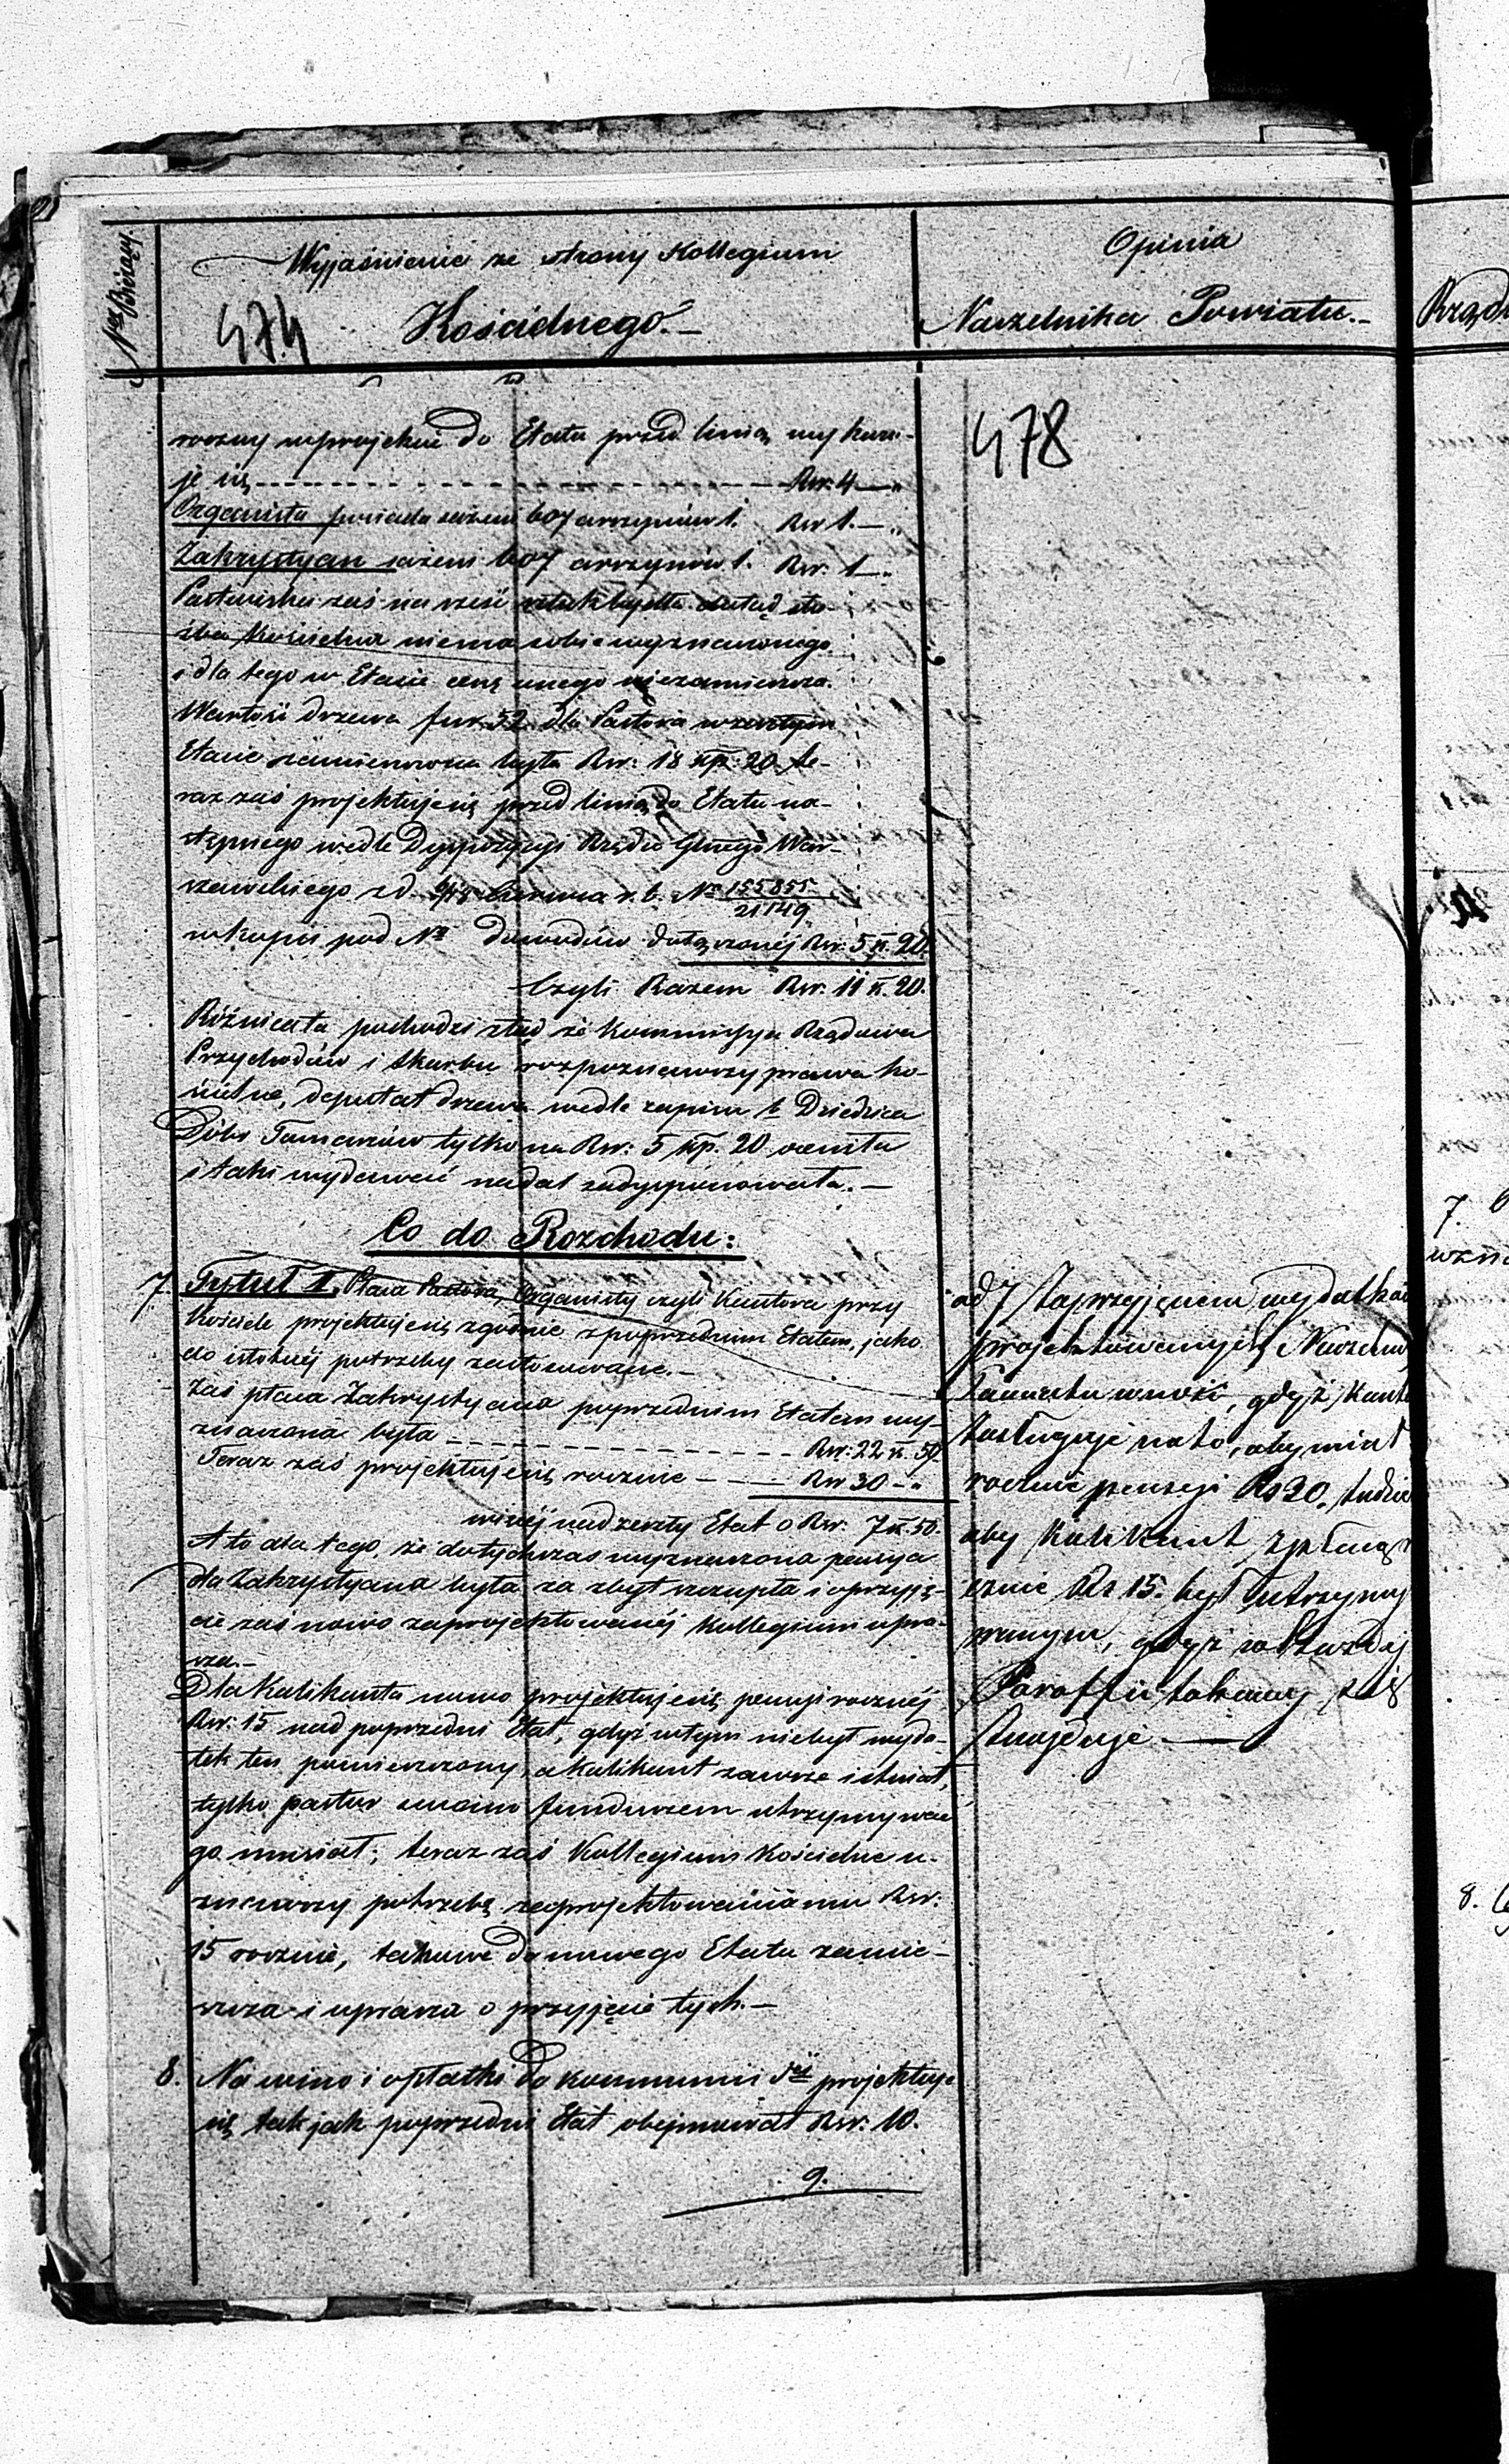 Nr Bieżący.
Wyjaśnienie ze strony Kollegium
Kościelnego.
474
Opinia
Naczelnika Powiatu.
478
roczny w projekcie do Etatu przed linią wykazu-
je się Rsr. 4 —
Organista posiada sążeni 607 arszynów 1. Rsr 1. —
Zakrystyan sążeni 607 arszynów 1. Rsr. 1 —
Pastwiska zaś na sześć sztuk bydła dotąd słu-
żba Kościelna niema sobie wyznaczonego
i dla tego w Etacie ceny onego niezamieszcza.
Wartość drzewa fur. 52 dla Pastora w zeszłym
Etacie zamieszczona była Rsr: 18 kop. 20 te-
raz zaś projektuje się przed linią do Etatu na-
stępnego wedle Dyspozycyi Rządu Głnego War-
szawskiego z d. 6/18 Czerwca r. b. Nr 155855/21149
w kopii pod Nr dowodów dołączonéj Rsr: 5 k. 20.
Czyli Razem Rsr. 11 k. 20.
Różnica ta pochodzi ztąd że Kommissya Rządowa
Przychodów i Skarbu rozpoznawszy prawa ko-
ścielne, deputat drzewa wedle zapisu b. Dziedzica
Dóbr tylko na Rsr: 5 kop. 20 oceniła
i taki wydawać nadal zadysponowała. —
Co do Rozchodu:
7. Tytuł I. Płaca Pastora, Organisty czyli Kantora przy
Kościele projektuje się zgodnie z poprzednim Etatem, jako
do istotnéj potrzeby zastosowane. —
Zaś płaca Zakrystyana poprzednim Etatem wy-
znaczona była Rsr: 22 k. 50
Teraz zaś projektuje się rocznie Rsr 30 —
więcéj nad zeszły Etat o Rsr. 7 k. 50.
A to dla tego, że dotychczas wyznaczona pensya
dla Zakrystyana była za zbyt szczupła i o przyję-
cie zaś nowo zaprojektowanéj Kollegium upra-
sza. —
Dla Kalikanta nowo projektuje się pensyi rocznéj
Rsr. 15 nad poprzedni Etat, gdyż w tym niebył wyda-
tek ten pomieszczony, a Kalikant zawsze istniał,
tylko pastor swoim funduszem utrzymywać
go musiał; teraz zaś Kollegium Kościelne u-
znawszy potrzebę zaprojektowania mu Rsr.
15 rocznie, takowe do nowego Etatu zamie-
szcza i uprasza o przyjęcie tych. —
8. Na wino i opłatki do kommunii Sej projektuje
się tak jak poprzedni Etat obejmował Rsr. 10.
9.
ad 7/ Za przyjęciem wydatków
projektowanych, Naczelnik
Powiatu wnosi, gdyż Kanto
zasługuje na to, aby miał
rocznie pensyi Rs 30, tudzież
aby Kalikant z płacą r
cznie Rs 15. był utrzymy
wanym, gdyż w każdej
Paraffii takowy się
znajduje. —
Rząd
7.
8.